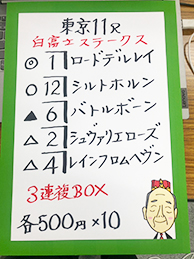 東京11R
白富士ステークス
◎1 ロードデルレイ
○12 シルトホルン
▲6 バトルボーン
△2 シュヴァリエローズ
△4 レインフロムヘヴン
3連複BOX
各500円×10